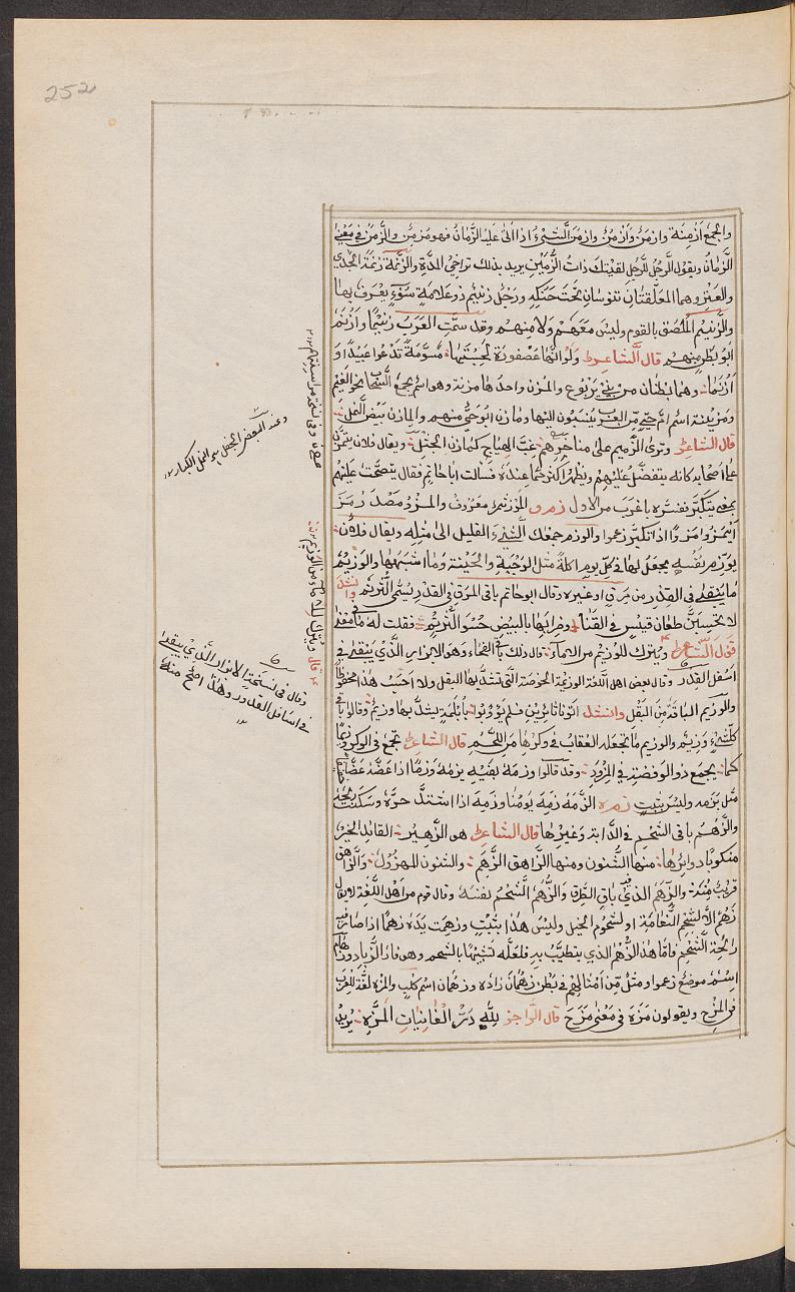 252
والجمع أزمنة وازمن وأزمن وازمن الشيء اذا اتى عليه الزمان فهو مزمن والزمن في معنى
الزمان ويقول الرجل للرجل لقيتك ذات الزمين يريد بذلك تراخي المدة والزنمة زنمة الجدي
والعنز وهما المعلقتان تنوسان تحت حنكه ورجل زنيم ذو علامة سوء يعرف بها
والزنيم الملصق بالقوم وليس معهم ولا منهم وقد سمت العرب زنيما وازنم
ابو بطن منهم قال الشاعر ولو انها عصفورة لحسبتها مسومة تدعو عبيدا و
أزنما وهما بطنان من بني يربوع والمزن واحدها مزنة وهو اسم يجمع السحاب نحو الغيم
ومزينة اسم ام حي من العرب ينسبون اليها ومازن ابو حي منهم والمازن بيض النمل
قال الشاعر وترى الذميم على مناخرهم غب الهياج كمازن الجثل ويقال فلان يتمزن
على اصحابه كانه يتفضل عليهم ويظهر اكثر مما عنده فسالت ابا حاتم فقال يتمضحت عليهم
يعني يتكبر ففسره باغرب من الاول زم و الزم معروف والمزر مصدر مز
اذا تكبر زعموا والوزم جمعك الشيء القليل الى مثله ويقال فلان
يوزم نفسه يجعل لها في كل يوم اكلة مثل الوجبة والحينة وما اشبهها والوزيم
ما يبقى في القدر من مرق او غيره وقال ابو حاتم باقي المرق في القدر يسمى الثرتم وانشد
لا تحسبن طعان قيس في القنا وضرابها بالبيض حسو الثرتم فقلت له ما معنى
قول الشاعر ويترك للوزيم من الاماء قال ذلك باقي الفحاء وهو الابزار الذي يبقى في
اسفل القدر وقال بعض اهل اللغة الوزيمة الخوصة التي تشد بها البقل ولا احسب هذا محفوظا
والوزيم الباقة من البقل وانشد اتونا ثائرين فلم يؤوبوا بابلمة يشد بها وزيم وقالوا باقي
كل شيء وزيم والوزيم ما تجعله العقاب في وكرها من اللحم قال الشاعر تجمع في الوكر وزيما
كما يجمع ذو الوفضة في المزود وقد قالوا وزمه بفيه يزمه وزما اذا عضه عضا
مثل بزمه وليس بثبت زم ه الزمه زمه يومنا وزمه اذا اشتد حره وسكنت ريحه
والزهم باقي الشحم في الدابة وغيرها قال الشاعر هو الزهير القائد الخيل
منكوبا دوابرها منها الشنون ومنها الزاهق الزهم والشنون المهزول والزاهق
قريب منه والزهم الذي فيه باقي الطرق والزهم الشحم نفسه وقال قوم من اهل اللغة لا يقال
زهم الا لشحم النعامة او لشحوم الخيل وليس هذا بثبت وزهمت يده زهما اذا صارت فيها
رائحة الشحم فاما هذا الزهم الذي يتطيب به فلعله تشبيها بالشحم وهو فاذ الزباد وزهام
اسم موضع زعموا ومثل من امثالهم في بطن زهمان زاده وزهمان اسم كلب والمزه لغة للعرب
في المزح ويقولون مزه في معنى مزح قال الراجز لله در الغانيات المزه يريد
وعند البعض الجثل النمل الكبار
وقال في نسخة الابزار الذي يبقى
في اسافل القدور وهذا اصح منه